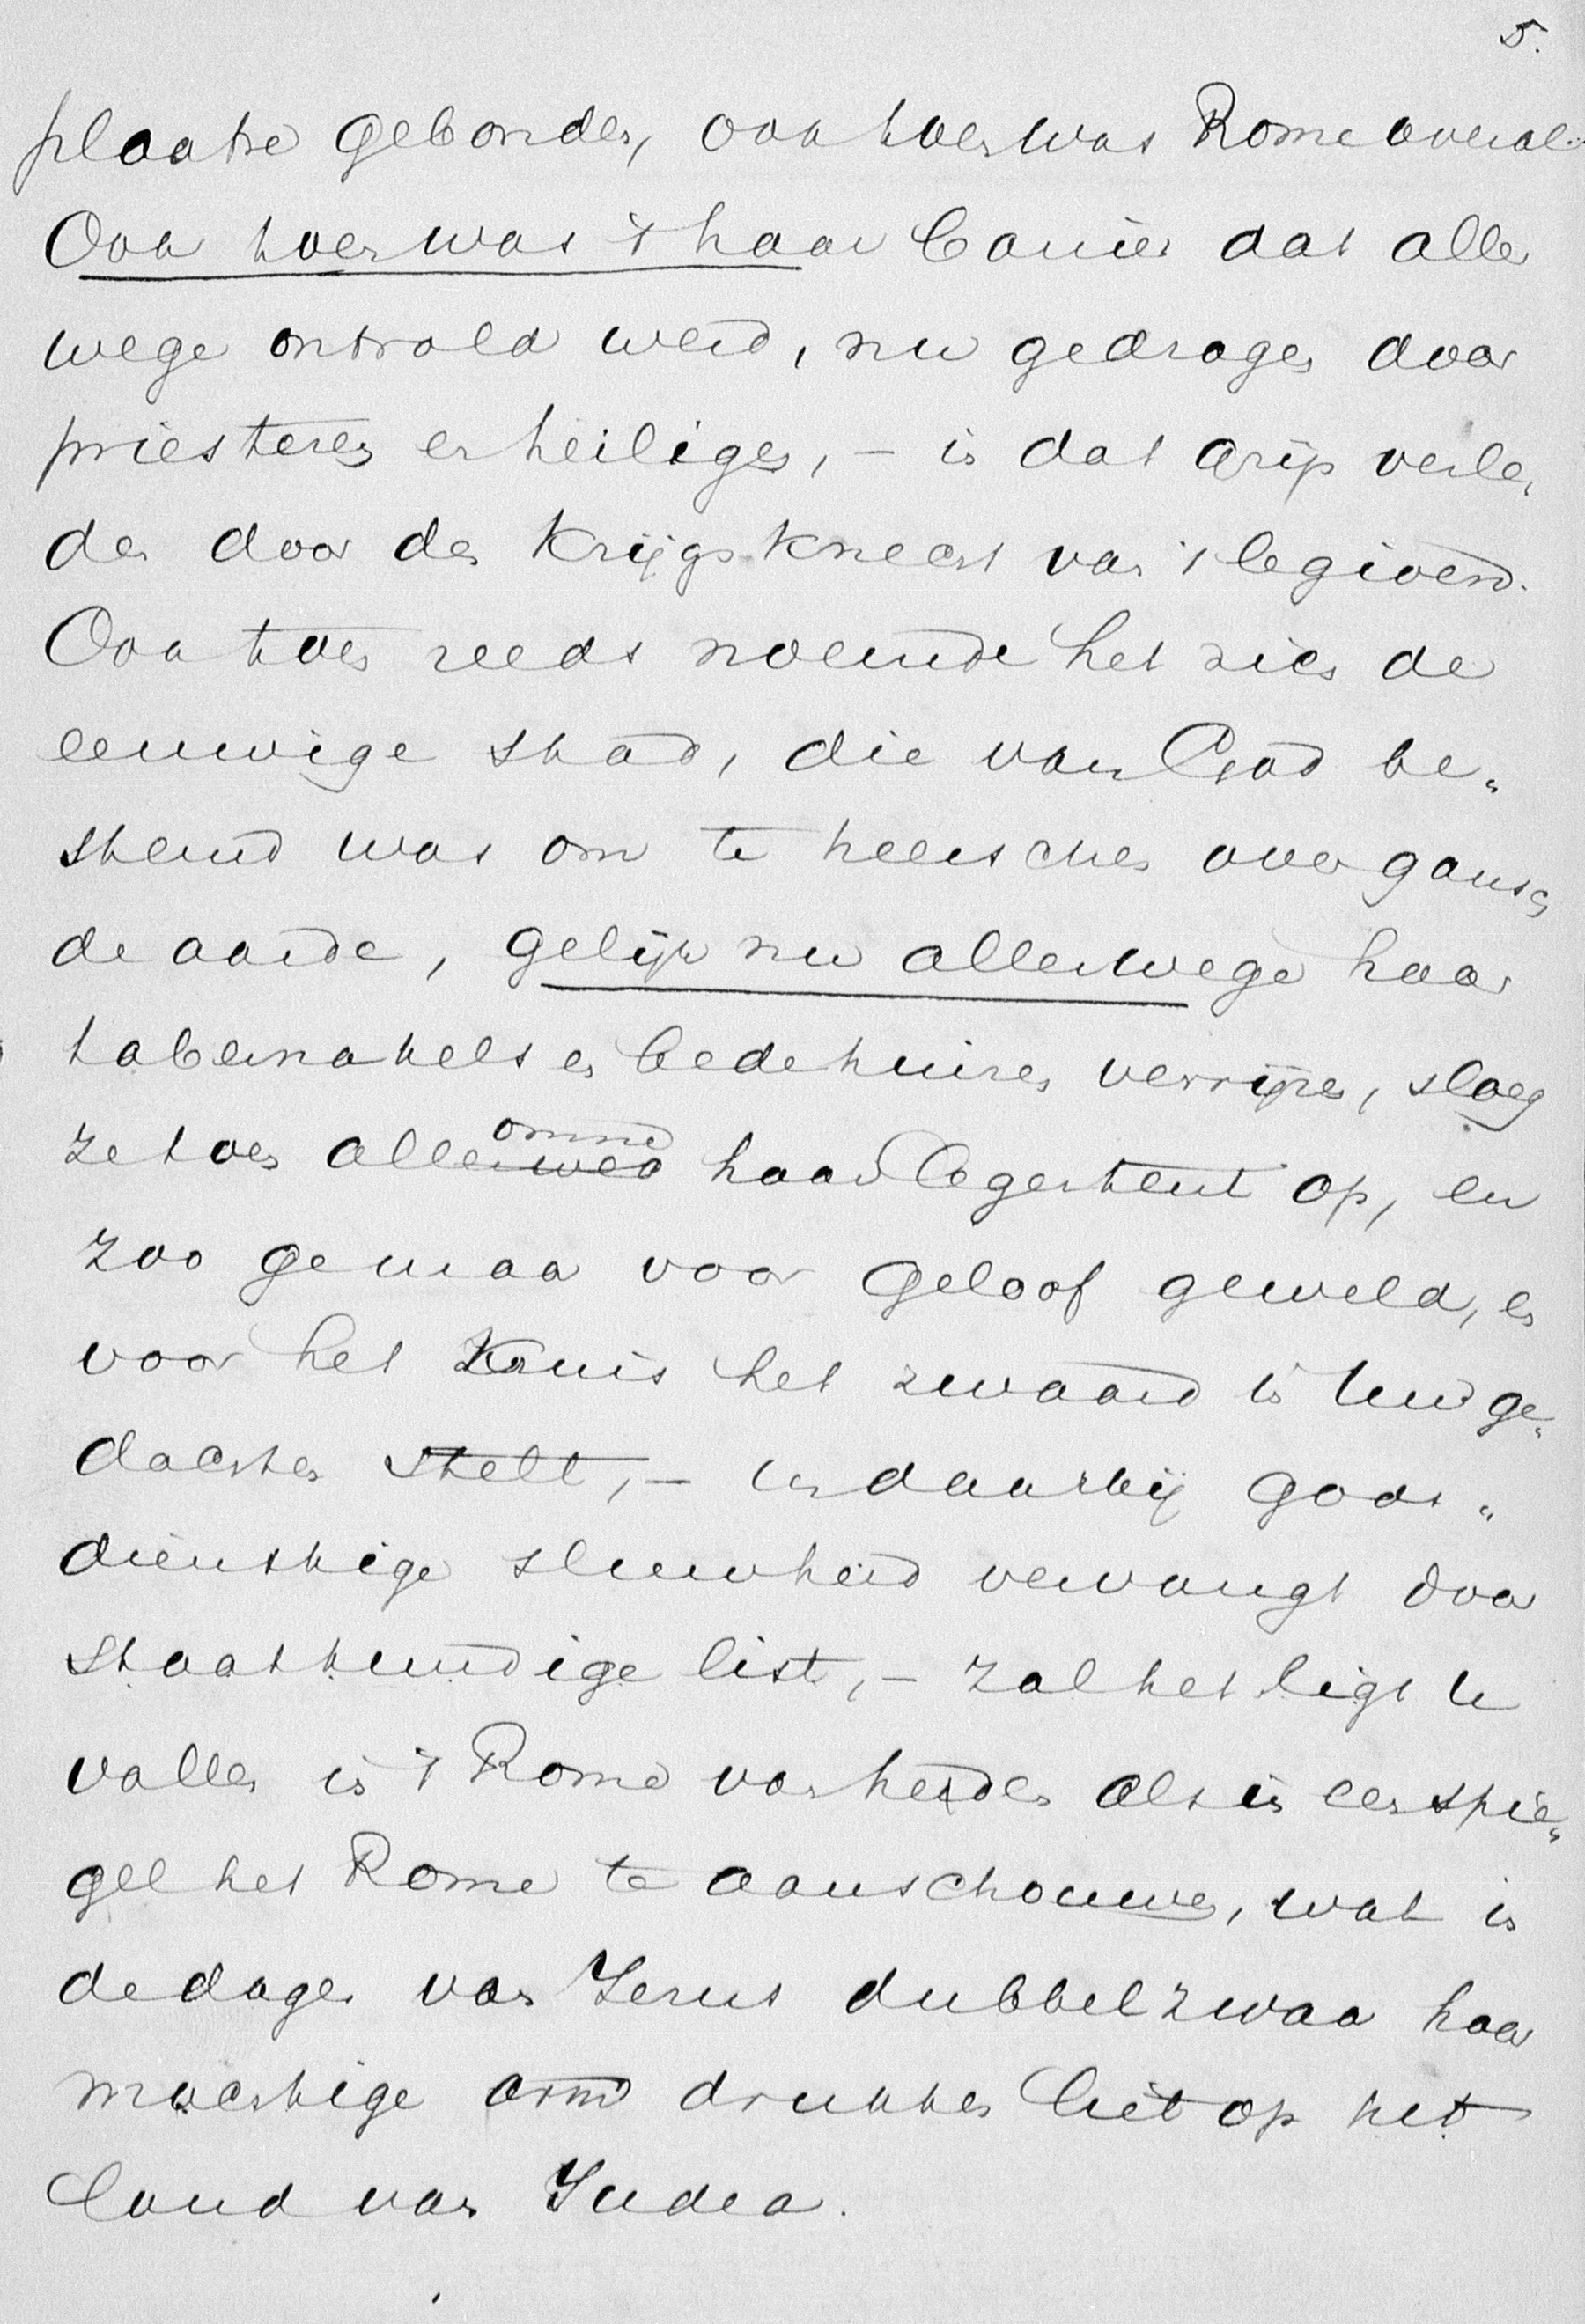 5.
plaatse gebonden, ook toen was Rome overal.
Ook toen was 't haar banier dat aller
wege ontrold werd, nu gedragen door
priesteren en heiligen, - in dat grijs verle„
den door den Krijgsknecht van 't legioen.
Ook toen reeds noemde het zich de
eeuwige stad, die van God be„
stemd was om te heerschen over gansch
de aarde, gelijk nu allerwege haar
tabernakels en bedehuizen verrijzen, sloeg
ze toen allerweg omme haar legertent op, en
zoo ge maar voor geloof geweld, en
voor het Kruis het zwaard in uw ge„
dachten stelt, - en daarbij gods„
dienstige sluwheid vervangt door
staatkundige list, - zal het ligt te
vallen in 't Rome van heden als in een spie„
gel het Rome te aanschouwen, wat in
de dagen van Jezus dubbel zwaar haar
machtige arm drukken liet op het
land van Judea.